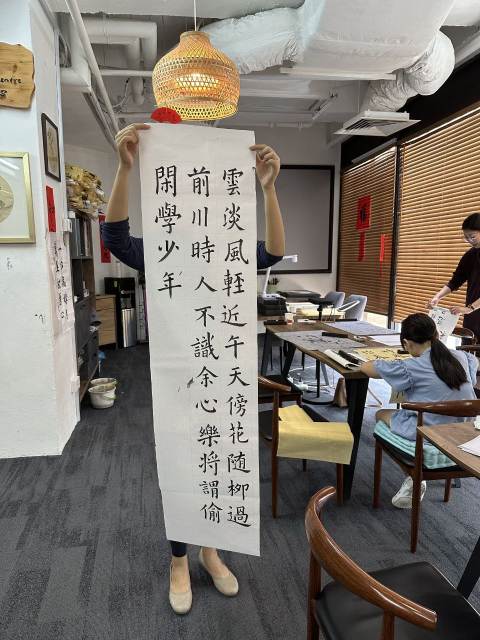 雲淡風輕近午天傍花隨柳過
前川時人不識余心樂將謂偷
閑學少年